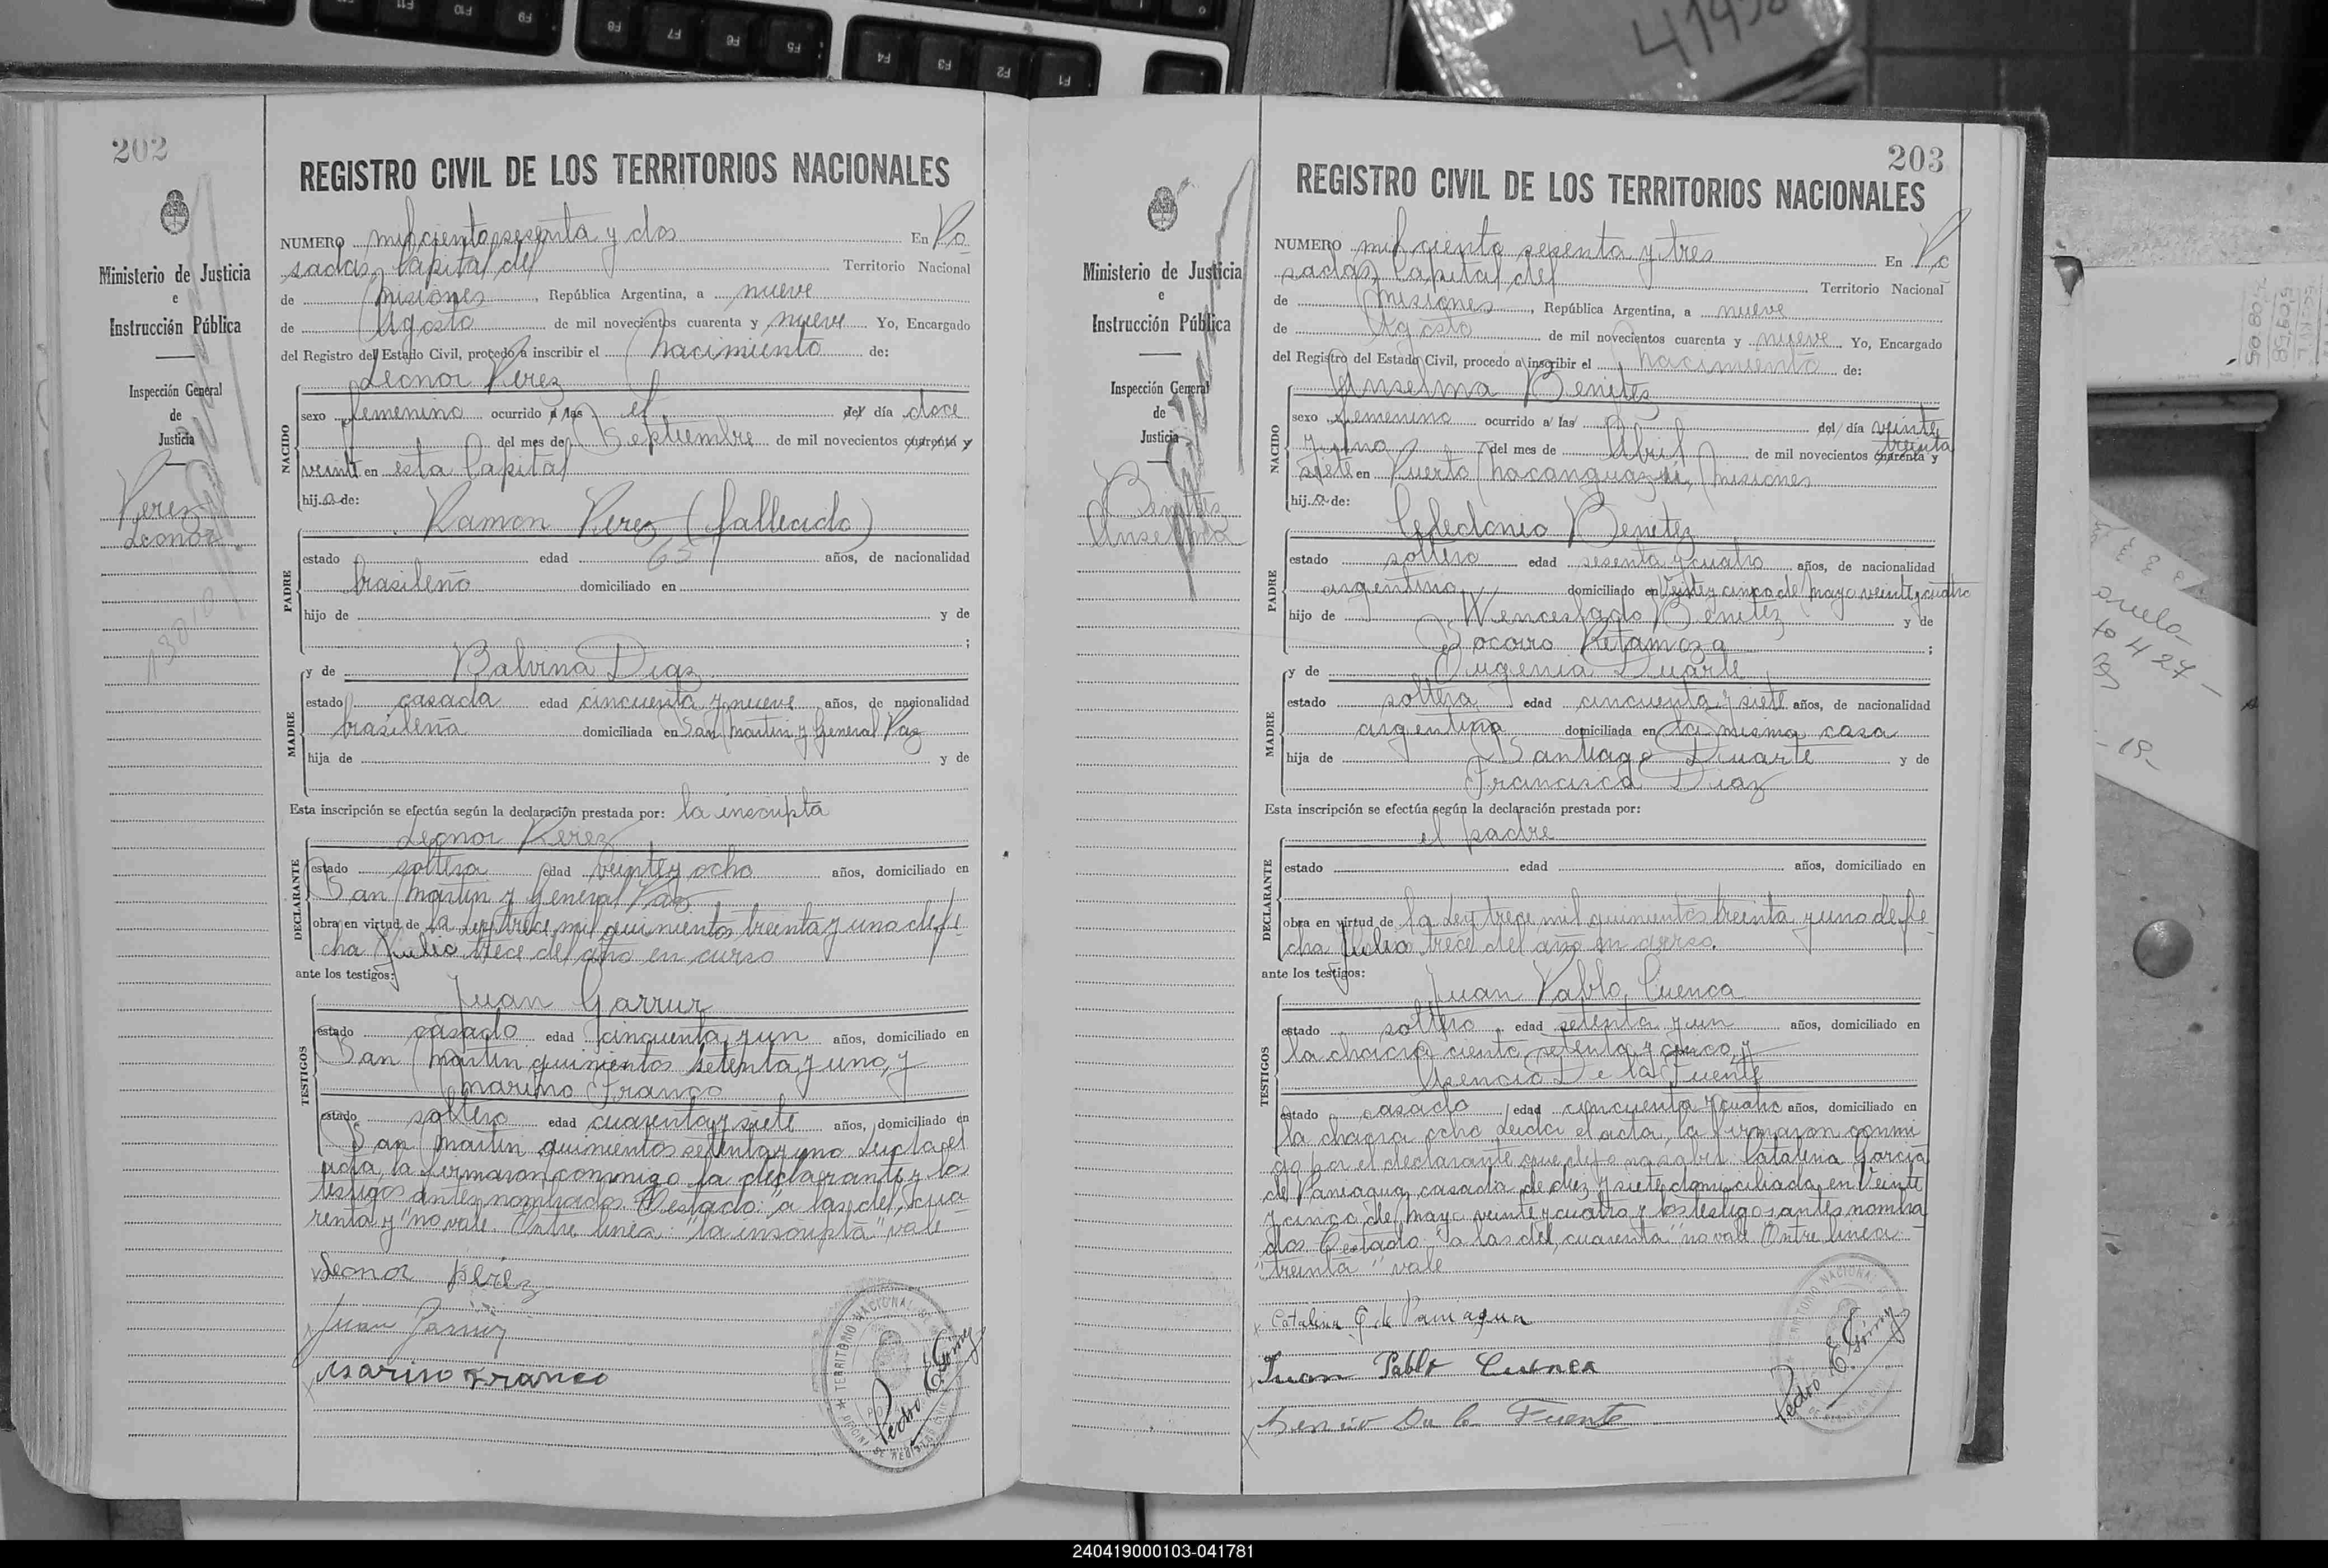 202
REGISTRO CIVIL DE LOS TERRITORIOS NACIONALES
Ministerio de Justicia
e
Instrucción Pública
Inspección General
de
Justicia
Perez
Leonor
NUMERO mil ciento sesenta y dos En Po
sadas, Capital del Territorio Nacional
de Misiones, República Argentina, a nueve
de Agosto de mil novecientos cuarenta y nueve Yo, Encargado
del Registro del Estado Civil, procedo a inscribir el nacimiento de:
Leonor Perez
NACIDO
sexo femenino ocurrido a las el del día doce
del mes de Septiembre de mil novecientos cuarenta y
veinte en esta Capital
hija de:
Ramon Perez (fallecido)
PADRE
estado edad 63 años, de nacionalidad
brasileño domiciliado en
hijo de y de
;
y de Balvina Diaz
MADRE
estado casada edad cincuenta y nueve años, de nacionalidad
brasileña domiciliada en San Martin y General Paz
hija de y de
Esta inscripción se efectúa según la declaración prestada por: la inscripta
Leonor Perez
DECLARANTE
estado soltera edad veinte y ocho años, domiciliado en
San Martin y General Paz
obra en virtud de la ley trece mil quinientos treinta y uno de fe
cha Julio trece del año en curso
ante los testigos:
Juan Garrur
TESTIGOS
estado casado edad cincuenta y un años, domiciliado en
San Martin quinientos setenta y uno, y
Marino Franco
estado soltero edad cuarenta y siete años, domiciliado en
San Martin quinientos setenta y uno Leida el
acta, la firmaron conmigo la declarante y los
testigos antes nombrados. Testado: "a las del, cua
renta y" no vale. Entre linea: "la inscripta" vale
Leonor Perez
Juan
Marino Franco
TERRITORIO NACIONAL
Pedro E. Gómez
203
REGISTRO CIVIL DE LOS TERRITORIOS NACIONALES
Ministerio de Justicia
e
Instrucción Pública
Inspección General
de
Justicia
Benitez
Anselma
NUMERO mil ciento sesenta y tres En Po
sadas, Capital del Territorio Nacional
de Misiones, República Argentina, a nueve
de Agosto de mil novecientos cuarenta y nueve Yo, Encargado
del Registro del Estado Civil, procedo a inscribir el nacimiento de:
Anselma Benitez
NACIDO
sexo femenino ocurrido a las del día veinte
treinta
y uno del mes de Abril de mil novecientos cuarenta y
siete en Puerto Misiones
hija de:
Celedonio Benitez
PADRE
estado soltero edad sesenta y cuatro años, de nacionalidad
argentino domiciliado en Veinte y cinco de Mayo veinte y cuatro
hijo de Wenceslado Benitez y de
Socorro Retamoza ;
y de Eugenia Duarte
MADRE
estado soltera edad cincuenta y siete años, de nacionalidad
argentina domiciliada en la misma casa
hija de Santiago Duarte y de
Francisca Diaz
Esta inscripción se efectúa según la declaración prestada por:
el padre
DECLARANTE
estado edad años, domiciliado en
obra en virtud de la Ley trece mil quinientos treinta y uno de fe
cha Julio trece del año en curso.
ante los testigos:
Juan Pablo Cuenca
TESTIGOS
estado soltero edad setenta y un años, domiciliado en
la chacra ciento setenta y cinco, y
Asencio De la Fuente
estado casado edad cincuenta y cuatro años, domiciliado en
la chacra ocho Leida el acta, la firmaron conmi
go por el declarante que dijo no saber Catalina Garcia
de Paniagua, casada, de diez y siete domiciliada en Veinte
y cinco de Mayo veinte y cuatro y los testigos antes nombra
dos. Testado: "a las del, cuarenta" no vale Entre linea:
"treinta" vale
Catalina G de Paniagua
Juan Pablo Cuenca
De la Fuente
Pedro E. Gómez
F1
F2
F3
F4
F5
F6
F7
F8
F9
F10
F11
240419000103-041781